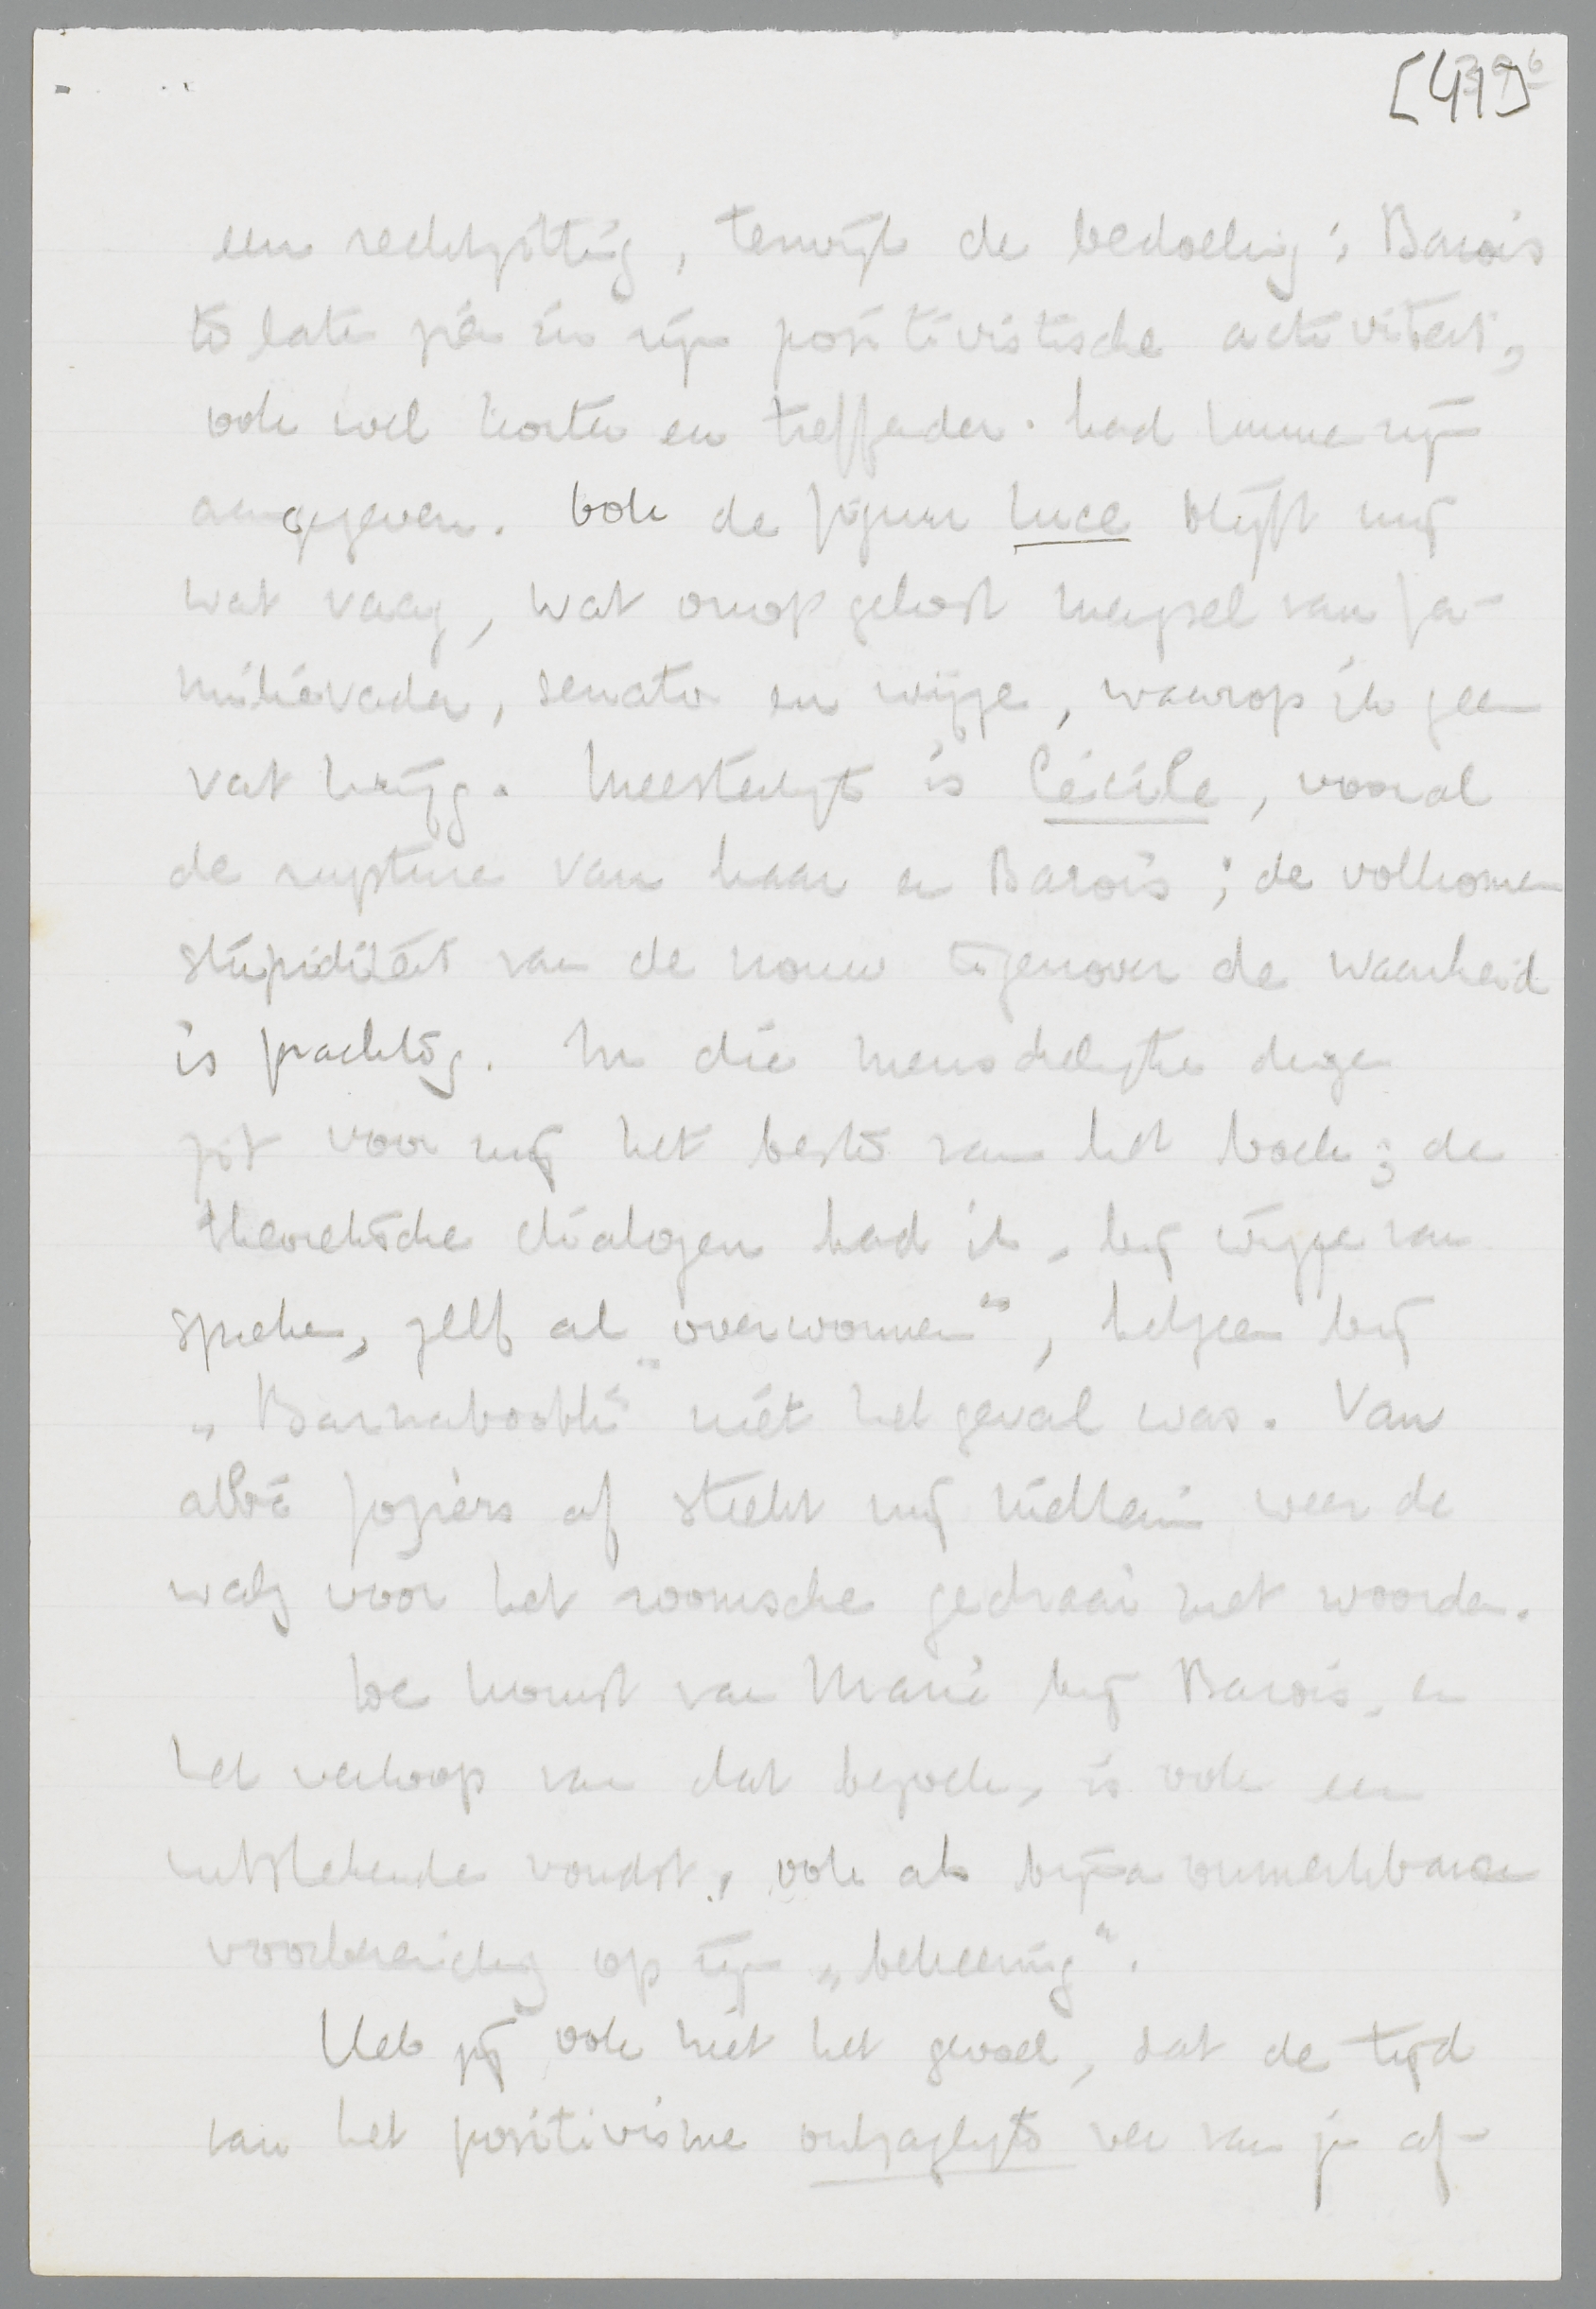 [41]
een rechtzitting, terwijl de bedoeling: Barois
te laten zien in zijn positivistische activiteit,
ook wel korter en treffender had kunnen zijn
aangegeven. Ook de figuur Luce blijft mij
wat vaag, wat onopgelost mengsel van fa-
milievader, senator en wijze, waarop ik geen
vat krijg. Meesterlijk is Cécile, vooral
de rupture van haar en Barois; de volkomen
stupiditeit van de vrouw tegenover de waarheid
is prachtig. In die menschelijke dingen
zit voor mij het beste van het boek; de
theoretische dialogen had ik, bij wijze van
spreken, zelf al „overwonnen", hetgeen bij
„Barnabooth" niét het geval was. Van
allerlei papiers af steekt mij meteen weer de
walg vóór het roomsche gedraai met woorden.
De komst van Marie bij Barois, en
het verloop van dat bezoek, is ook een
uitstekende vondst, ook als bijna onmerkbaren
voorbereiding op zijn „bekeering".
Heb jij ook niet het gevoel, dat de tijd
van het positivisme ontzaglijk ver van je af-